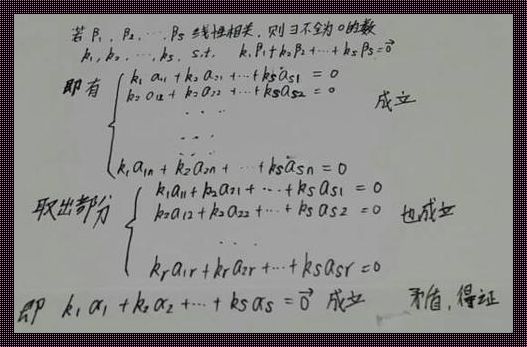 若 β₁, β₂, …, βs 线性相关, 则∃不全为0的数
k₁, k₂, …, ks, s.t. k₁β₁+k₂β₂+…+ksβs=0⃗
即有 { k₁a₁₁+k₂a₂₁+…+ksas₁ = 0
k₂a₁₂+k₂a₂₂+…+ksas₂ = 0 成立
...
...
k₁a₁n+k₂a₂n+…+ksasn = 0
取出部分 { k₁a₁₁+k₂a₂₁+…+ksas₁ = 0
k₂a₁₂+k₂a₂₂+…+ksas₂ = 0 也成立
...
kra₁r+kra₂r+…+ksasr = 0
即 k₁α₁+k₂α₂+…+ksαs=0⃗ 成立 矛盾, 得证